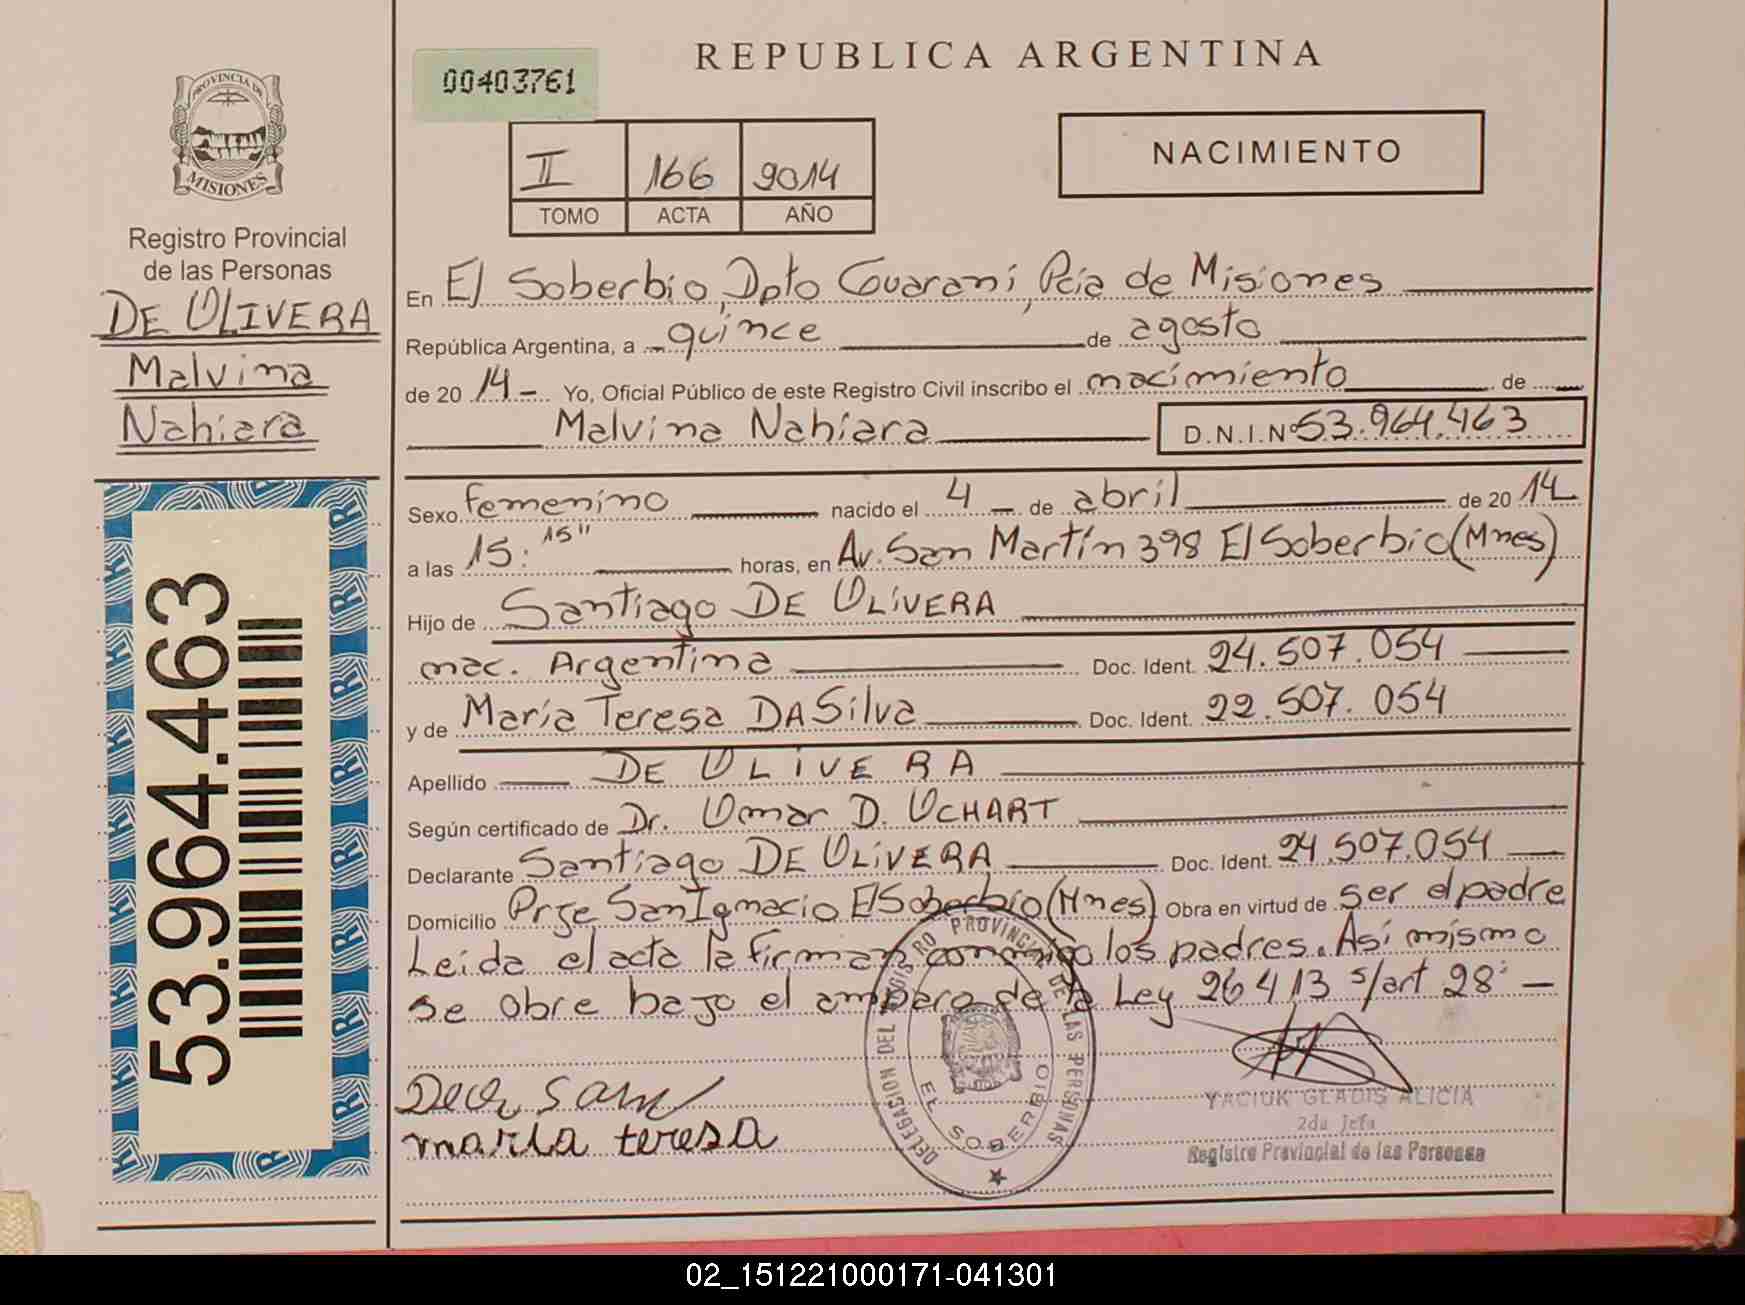 REPUBLICA ARGENTINA
00403761
PROVINCIA DE
MISIONES
II 166 2014
TOMO ACTA AÑO
NACIMIENTO
Registro Provincial
de las Personas
DE OLIVERA
Malvina
Nahiara
53.964.463
En El Soberbio, Dpto Guaraní, Pcia de Misiones
República Argentina, a quince de agosto
de 20 14 - Yo, Oficial Público de este Registro Civil inscribo el nacimiento de
Malvina Nahiara D.N.I.Nº 53.964.463
Sexo femenino nacido el 4 de abril de 20 14
a las 15:15" horas, en Av. San Martín 398 El Soberbio (Mnes)
Hijo de Santiago DE OLIVERA
nac. Argentina Doc. Ident. 24.507.054
y de María Teresa DA Silva Doc. Ident. 22.507.054
Apellido DE OLIVERA
Según certificado de Dr. Omar D. OCHART
Declarante Santiago DE OLIVERA Doc. Ident. 24.507.054
Domicilio Prje San Ignacio El Soberbio (Mnes) Obra en virtud de ser el padre
Leída el acta la firman conmigo los padres. Así mismo
se obre bajo el amparo de la Ley 26413 s/art 28º -
DELEGACION DEL REGISTRO PROVINCIAL DE LAS PERSONAS
EL SOBERBIO
maria teresa
YACIUK GLADIS ALICIA
2da Jefa
Registro Provincial de las Personas
02_151221000171-041301